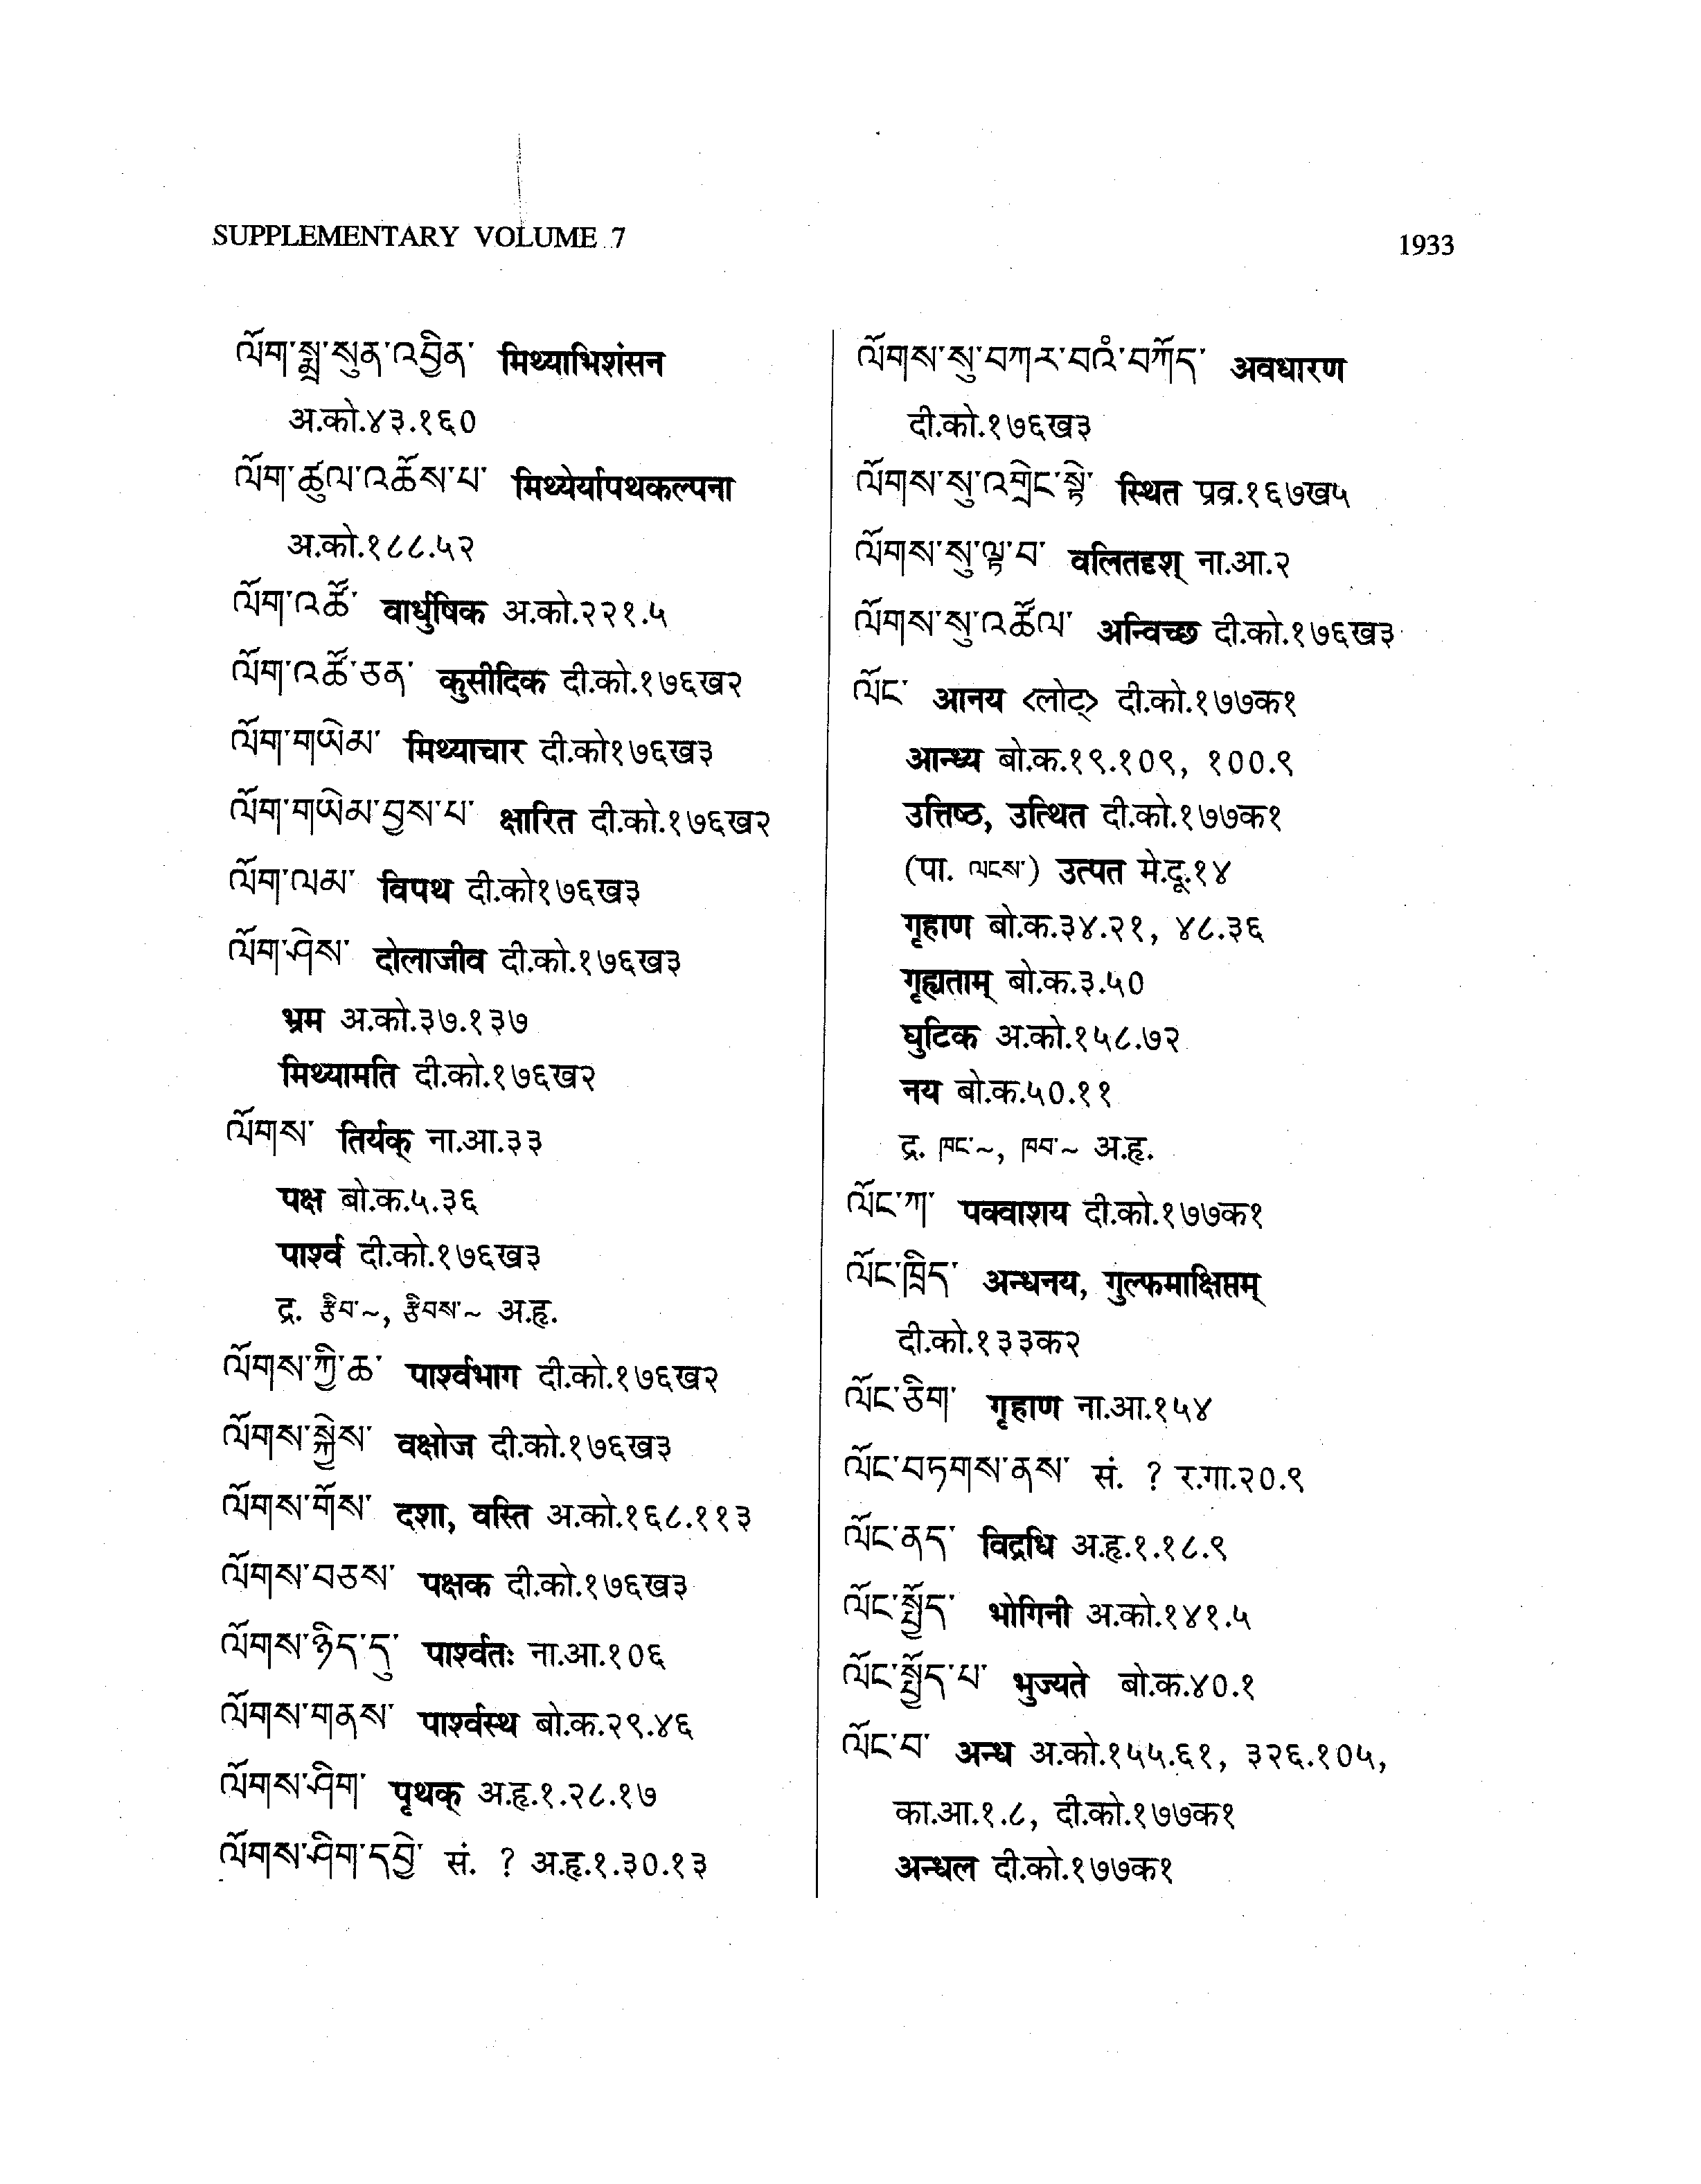 SUPPLEMENTARY VOLUME 7
1933
ལོག་སྨྲ་སུན་འབྱིན་ मिथ्याभिशंसन
अ.को.४३.१६०
ལོག་ཚུལ་འཆོས་པ་ मिथ्येर्यापथकल्पना
अ.को.१८८.५२
ལོག་འཚོ་ वार्धुषिक अ.को.२२१.५
ལོག་འཚོ་ཅན་ कुसीदिक दी.को.१७६ख२
ལོག་གཡེམ་ मिथ्याचार दी.को१७६ख३
ལོག་གཡེམ་བྱས་པ་ क्षारित दी.को.१७६ख२
ལོག་ལམ་ विपथ दी.को१७६ख३
ལོག་ཤེས་ दोलाजीव दी.को.१७६ख३
भ्रम अ.को.३७.१३७
मिथ्यामति दी.को.१७६ख२
ལོགས་ तिर्यक् ना.आ.३३
पक्ष बो.क.५.३६
पार्श्व दी.को.१७६ख३
द्र. རྩིབ་~, རྩིབས་~ अ.हृ.
ལོགས་ཀྱི་ཆ་ पार्श्वभाग दी.को.१७६ख२
ལོགས་སྐྱེས་ वक्षोज दी.को.१७६ख३
ལོགས་གོས་ दशा, वस्ति अ.को.१६८.११३
ལོགས་བཅས་ पक्षक दी.को.१७६ख३
ལོགས་ཉིད་དུ་ पार्श्वतः ना.आ.१०६
ལོགས་གནས་ पार्श्वस्थ बो.क.२९.४६
ལོགས་ཤིག་ पृथक् अ.हृ.१.२८.१७
ལོགས་ཤིག་དབྱེ་ सं. ? अ.हृ.१.३०.१३
ལོགས་སུ་བཀར་བའི་བཀོད་ अवधारण
दी.को.१७६ख३
ལོགས་སུ་འགྲེང་སྟེ་ स्थित प्रव्र.१६७ख५
ལོགས་སུ་ལྟ་བ་ वलितदृश् ना.आ.२
ལོགས་སུ་འཚོལ་ अन्विच्छ दी.को.१७६ख३
ལོང་ आनय <लोट्> दी.को.१७७क१
आन्ध्य बो.क.१९.१०९, १००.९
उत्तिष्ठ, उत्थित दी.को.१७७क१
(पा. ལངས་) उत्पत मे.दू.१४
गृहाण बो.क.३४.२१, ४८.३६
गृह्यताम् बो.क.३.५०
घुटिक अ.को.१५८.७२
नय बो.क.५०.११
द्र. ཁང་~, ཁབ་~ अ.हृ.
ལོང་ཀ་ पक्वाशय दी.को.१७७क१
ལོང་ཁྲིད་ अन्धनय, गुल्फमाक्षिप्तम्
दी.को.१३३क२
ལོང་ཅིག་ गृहाण ना.आ.१५४
ལོང་བཏགས་ནས་ सं. ? र.गा.२०.९
ལོང་ནད་ विद्रधि अ.हृ.१.१८.९
ལོང་སྤྱོད་ भोगिनी अ.को.१४१.५
ལོང་སྤྱོད་པ་ भुज्यते बो.क.४०.१
ལོང་བ་ अन्ध अ.को.१५५.६१, ३२६.१०५,
का.आ.१.८, दी.को.१७७क१
अन्धल दी.को.१७७क१